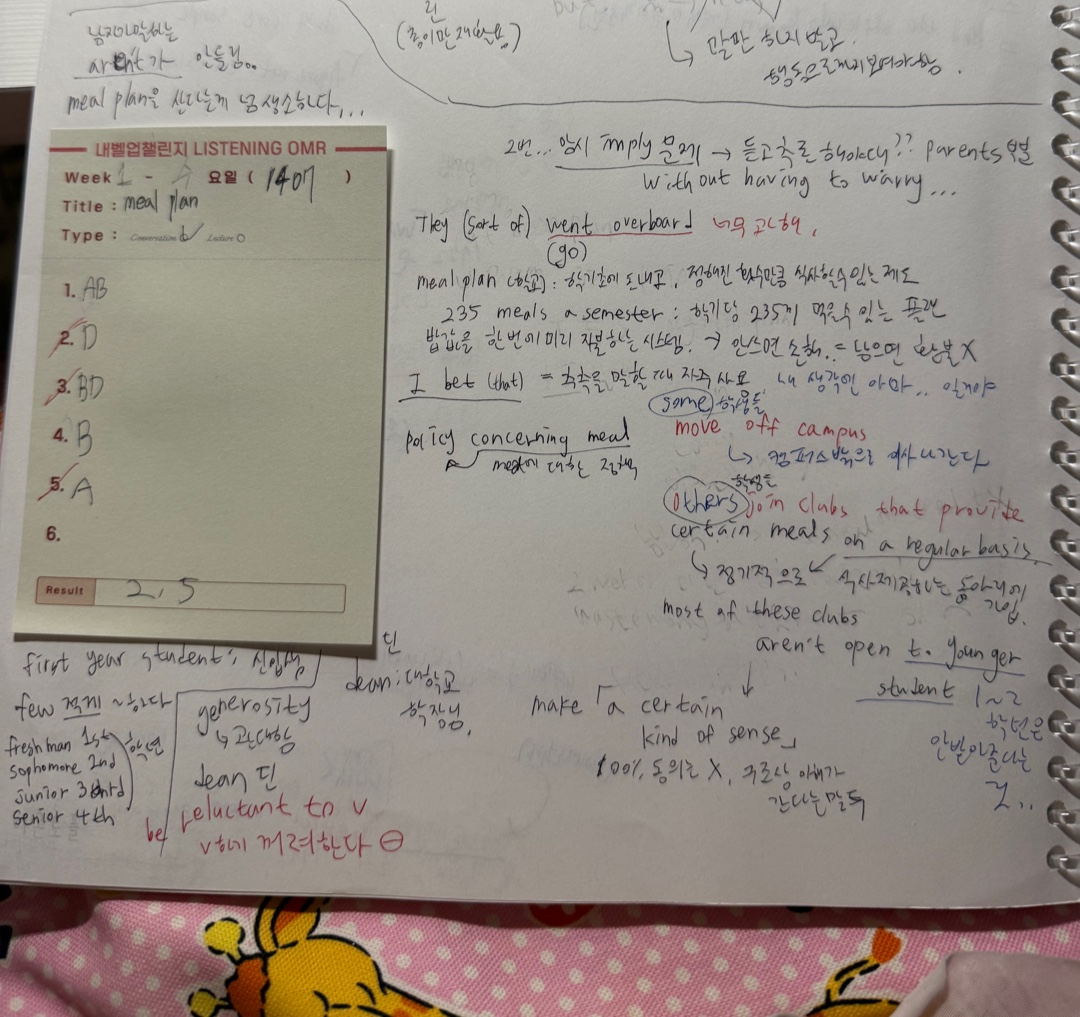 린
(종이만 재활용)
↳ 말만 하지 말고
행동으로까지 보여야함.
남자가 말하는
aren't가 안들림..
meal plan을 산다는게 넘 생소하다...
내벨업챌린지 LISTENING OMR
Week 1 - 수 요일 ( 1407 )
Title : meal plan
Type : Conversation Lecture
1. AB
2. D
3. BD
4. B
5. A
6.
Result 2, 5
2번... 암시 imply 문제 → 듣고 추론 해야해?? parents 부분
without having to warry...
They (sort of) went overboard 너무 과해.
(go)
meal plan (학교) : 학기초에 돈내고, 정해진 횟수만큼 식사할수 있는 제도
235 meals a semester : 학기당 235끼 먹을수 있는 플랜
밥값을 한번에 미리 지불하는 시스템. → 안쓰면 손해. = 남으면 환불 X
I bet (that) = 추측을 말할 때 자주 사용 내 생각엔 아마.. 일거야
some 학생들
move off campus
↳ 캠퍼스밖으로 이사 나간다
policy concerning meal
meal에 대한 정책
학생들
others join clubs that provide
certain meals on a regular basis.
↳ 정기적으로 식사제공하는 동아리에
가입.
most of these clubs
aren't open to younger
student 1~2
학년은
안받아준다는
것..
make 「a certain
kind of sense」
100% 동의는 X, 구조상 이해가
간다는 말투
first year student : 신입생
few 적게 ~하다
freshman 1st
sophomore 2nd
junior 3rd
senior 4th
학년
generosity
↳ 관대함
dean 딘
be reluctant to v
v하기 꺼려한다 ⊖
딘
dean : 대학교
학장님.